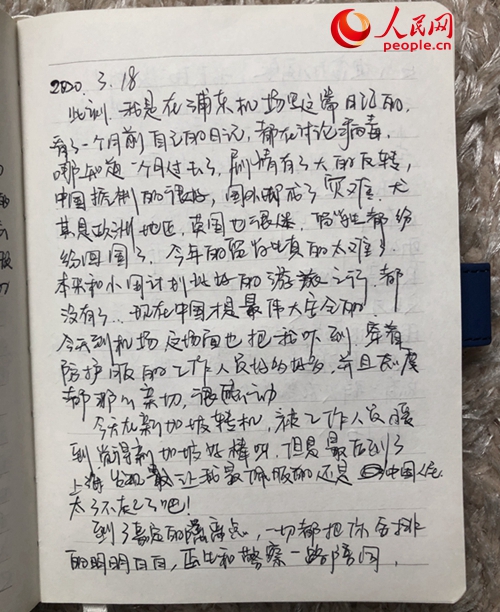 人民网
people.cn
2020. 3. 18
此刻，我是在浦东机场里这篇日记的，
看了一个月前自己的日记，都在讨论病毒，
哪知道一个月过去了，剧情有了大的反转，
中国控制的很好，国外却成了灾难，尤
其是欧洲地区，英国也很惨，留学生都给
给回国了，今年的留学生真的太难了
本来和小国计划好的游 之行，都
没有了…现在中国才是最伟大安全的，
今天到机场 场面也把我吓到，穿着
防护服的工作人员好多好多，并且态度
都那么亲切，很感动
今天在新加坡转机，被工作人员暖
到 觉得新加坡好棒呀，但是最后到了
上海发现最让我最佩服的还是 中国人民
太了不起了吧！
到了嘉定的隔离点，一切都把你安排
的明明白白，医生和警察一路陪同，